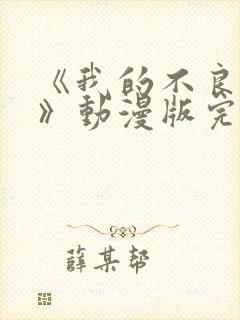 《我的不良
》動漫版完
薛某帮